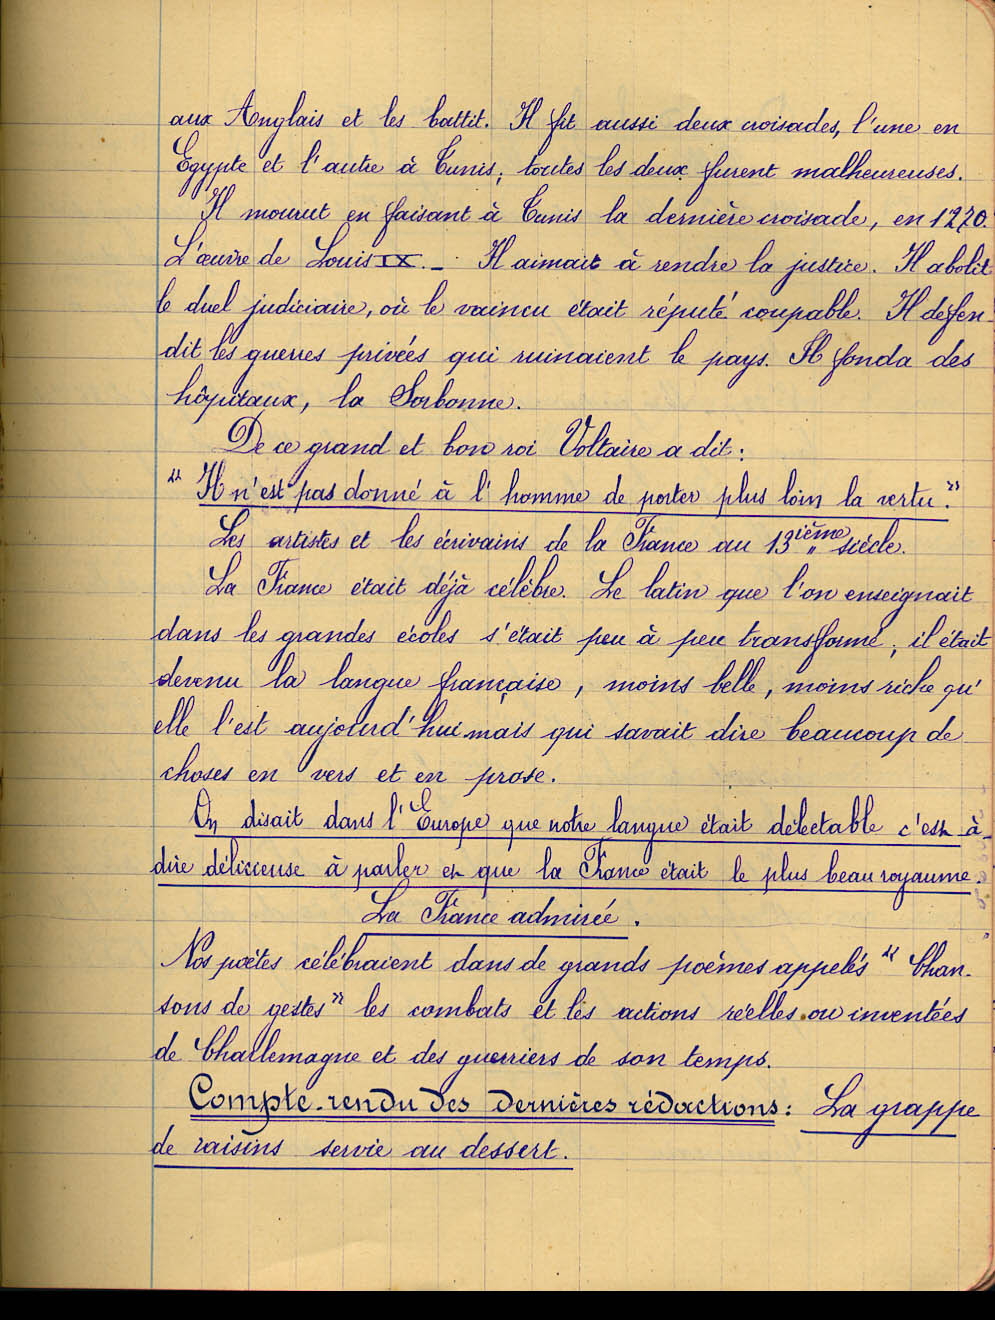 aux Anglais et les battit. Il fit aussi deux croisades, l'une en
Egypte et l'autre à Tunis; toutes les deux furent malheureuses.
Il mourut en faisant à Tunis la dernière croisade, en 1270.
L'œuvre de Louis IX. _ Il aimait à rendre la justice. Il abolit
le duel judiciaire, où le vaincu était réputé coupable. Il défen
dit les guerres privées qui ruinaient le pays. Il fonda des
hôpitaux, la Sorbonne.
De ce grand et bon roi Voltaire a dit :
" Il n'est pas donné à l'homme de porter plus loin la vertu."
Les artistes et les écrivains de la France au 13ième siècle.
La France était déjà célèbre. Le latin que l'on enseignait
dans les grandes écoles s'était peu à peu transformé; il était
devenu la langue française, moins belle, moins riche qu'
elle l'est aujourd'hui mais qui savait dire beaucoup de
choses en vers et en prose.
On disait dans l'Europe que notre langue était délectable c'est-à
dire délicieuse à parler et que la France était le plus beau royaume.
La France admirée.
Nos poètes célébraient dans de grands poèmes appelés " Chan-
sons de gestes" les combats et les actions réelles ou inventées
de Charlemagne et des guerriers de son temps.
Compte-rendu des dernières rédactions : La grappe
de raisins servie au dessert.